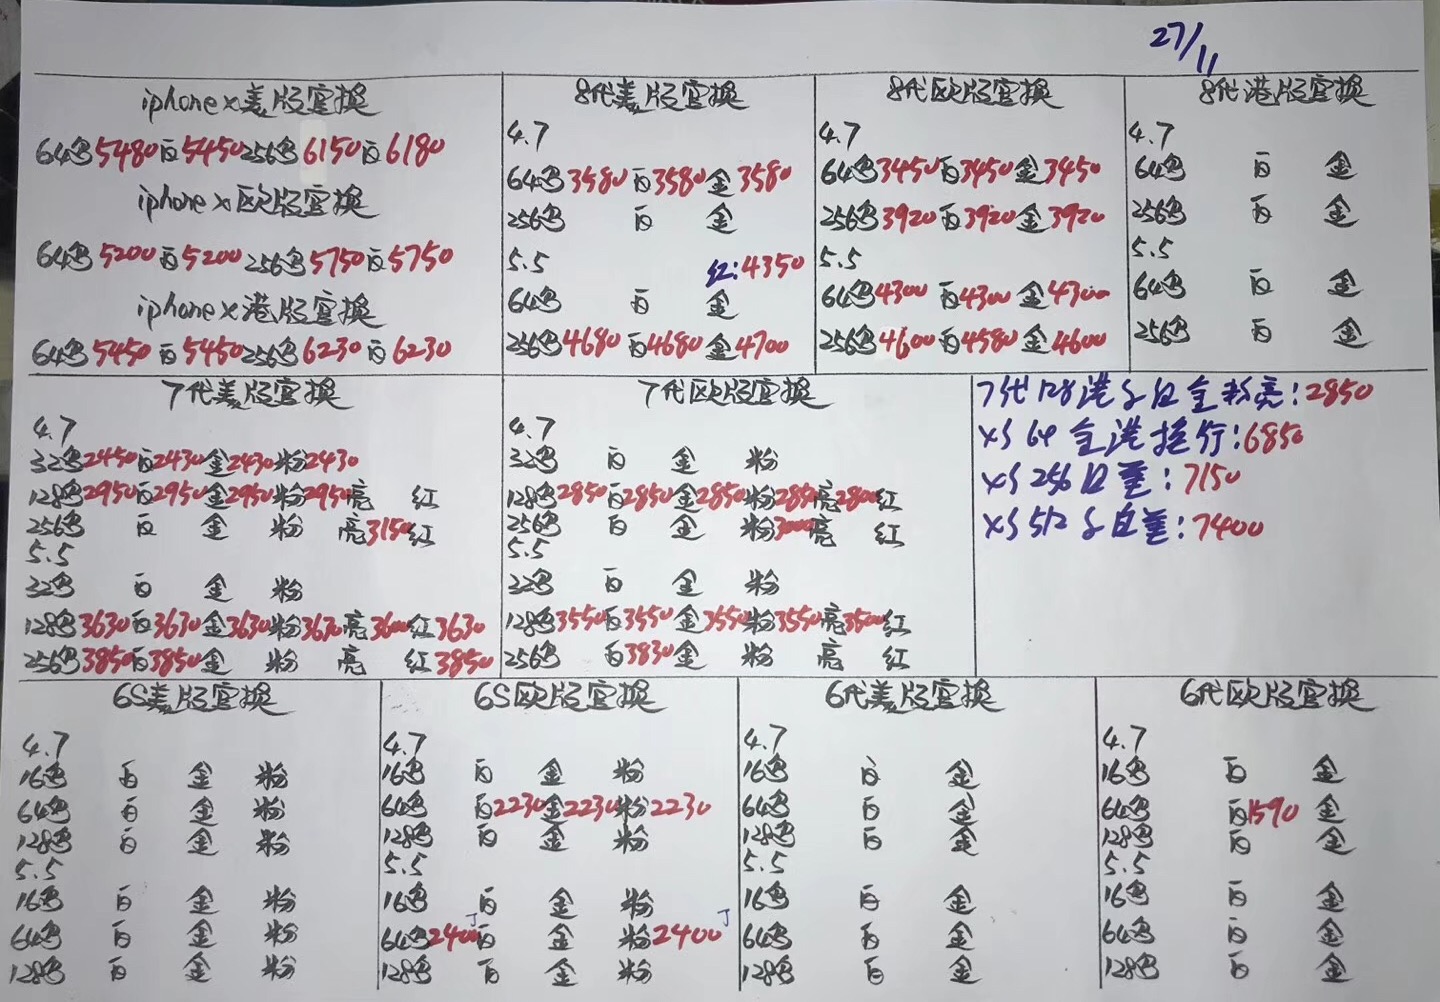 27/11
iphone x美版官换
64鸟5480白5450 256鸟6150白6180
iphone x欧版官换
64鸟5200白5200 256鸟5750白5750
iphone x港版官换
64鸟5450白5450 256鸟6230白6230
8代美版官换
4.7
64鸟3580白3580金3580
256鸟 白 金
5.5 红:4350
64鸟 白 金
256鸟4680白4680金4700
8代欧版官换
4.7
64鸟3450白3450金3450
256鸟3920白3920金3920
5.5
64鸟4300白4300金4300
256鸟4600白4580金4600
8代港版官换
4.7
64鸟 白 金
256鸟 白 金
5.5
64鸟 白 金
256鸟 白 金
7代美版官换
4.7
32鸟2450白2430金2430粉2430
128鸟2950白2950金2950粉2950亮 红
256鸟 白 金 粉 亮3150红
5.5
32鸟 白 金 粉
128鸟3630白3630金3630粉3630亮3600红3630
256鸟3850白3850金 粉 亮 红3850
7代欧版官换
4.7
32鸟 白 金 粉
128鸟2850白2850金2850粉2850亮2800红
256鸟 白 金 粉3000亮 红
5.5
32鸟 白 金 粉
128鸟3550白3550金3550粉3550亮3500红
256鸟 白3830金 粉 亮 红
7代128港 白金粉亮:2850
XS 64 金港换行:6850
XS 256白差:7150
XS 512 白差:7400
6S美版官换
4.7
16鸟 白 金 粉
64鸟 白 金 粉
128鸟 白 金 粉
5.5
16鸟 白 金 粉
64鸟 白 金 粉
128鸟 白 金 粉
6S欧版官换
4.7
16鸟 白 金 粉
64鸟 白2230金2230粉2230
128鸟 白 金 粉
5.5
16鸟 白 金 粉
64鸟2400白 金 粉2400
128鸟 白 金 粉
6代美版官换
4.7
16鸟 白 金
64鸟 白 金
128鸟 白 金
5.5
16鸟 白 金
64鸟 白 金
128鸟 白 金
6代欧版官换
4.7
16鸟 白 金
64鸟 白1590金
128鸟 白 金
5.5
16鸟 白 金
64鸟 白 金
128鸟 白 金